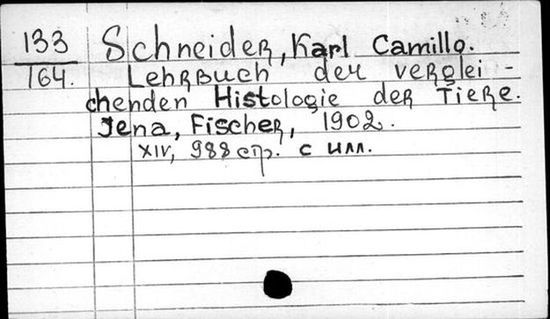 133
164.
Schneider, Karl Camillo.
Lehrbuch der verglei-
chenden Histologie der Tiere.
Jena, Fischer, 1902.
XIV, 988 стр. с илл.